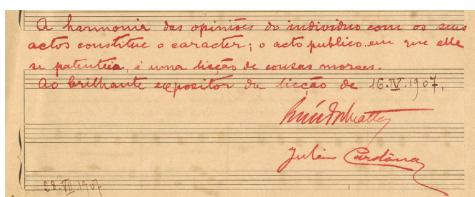 A harmonia das opiniões do individuo com os seus
actos constitue o caracter; o acto publico, em que elle
se patentêa, é uma licção de cousas moraes.
Ao brilhante expositor da licção de 16.IV.1907,
Julia Cardona
22.VII.1907